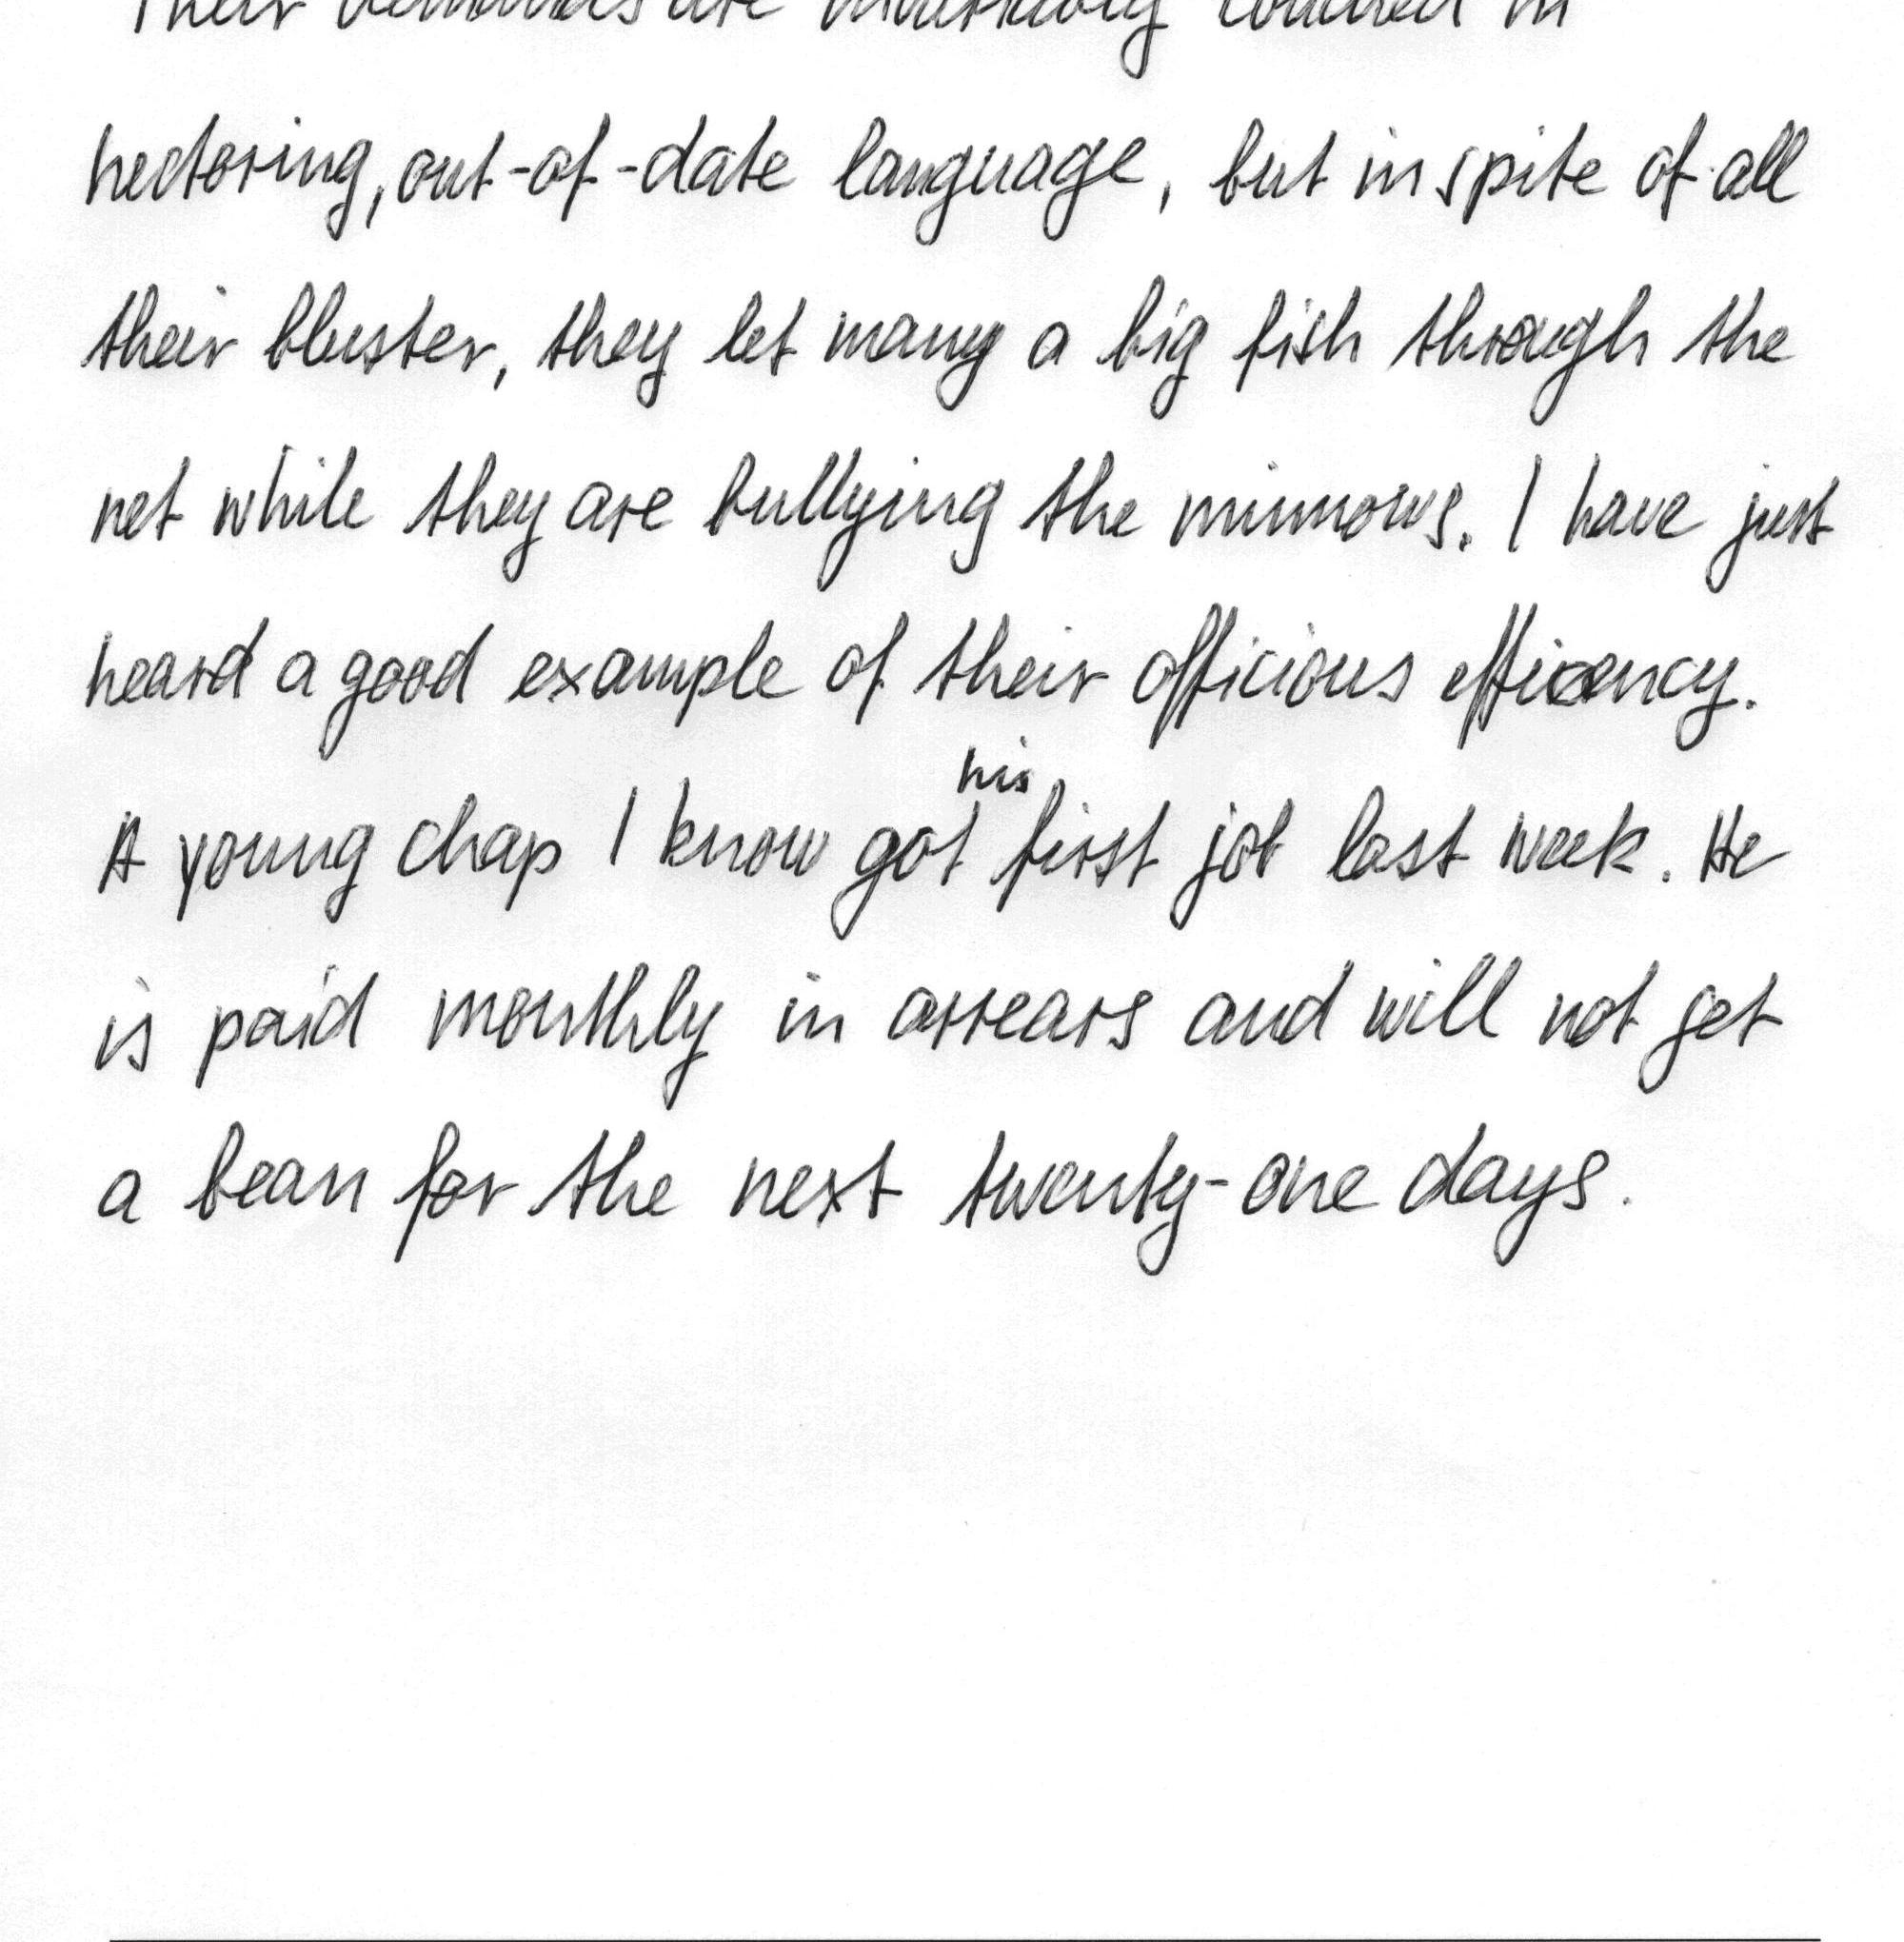 Their demands are invariably couched in
hectoring, out-of-date language, but in spite of all
their bluster, they let many a big fish through the
net while they are bullying the minnows. I have just
heard a good example of their officious efficency.
his
A young chap I know got first job last week. He
is paid monthly in arrears and will not get
a bean for the next twenty-one days.